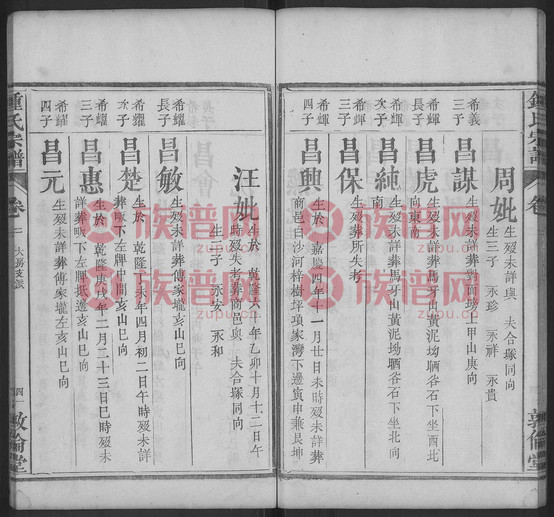 鍾氏宗譜
卷
敦倫堂
周妣
生歿未詳與 夫合塚同向
生三子 永珍 永祥 永貴
希義
三子
昌謀
生歿未詳葬對面坡上甲山庚向
希輝
長子
昌虎
生歿未詳葬馬牙山黃泥坳晒谷石下坐酉北
向東南
希輝
次子
昌純
生歿未詳葬馬牙山黃泥坳晒谷石下坐北向
南
希輝
三子
昌保
生歿葬所失考
希輝
四子
昌興
生於 嘉慶四年十一月廿日未時歿未詳葬
商邑白沙河梓樹坪項家灣下邊寅申兼艮坤
汪妣
生於 乾隆六十年乙卯十月十二日午
時歿失考葬商邑與 夫合塚同向
生二子 永安 永和
希耀
長子
昌敏
生歿未詳葬傅家壠亥山巳向
希耀
次子
昌楚
生於 乾隆 年四月初二日午時歿未詳
葬 下左脾中間亥山巳向
希耀
三子
昌惠
生於 乾隆庚戌年二月二十三日巳時歿未
詳葬 下左脾抵邊亥山巳向
希耀
四子
昌元
生歿未詳葬傅家壠左脾亥山巳向
鍾氏宗譜
卷一
大房支派
四一
敦倫堂
族谱网
zupu.cn